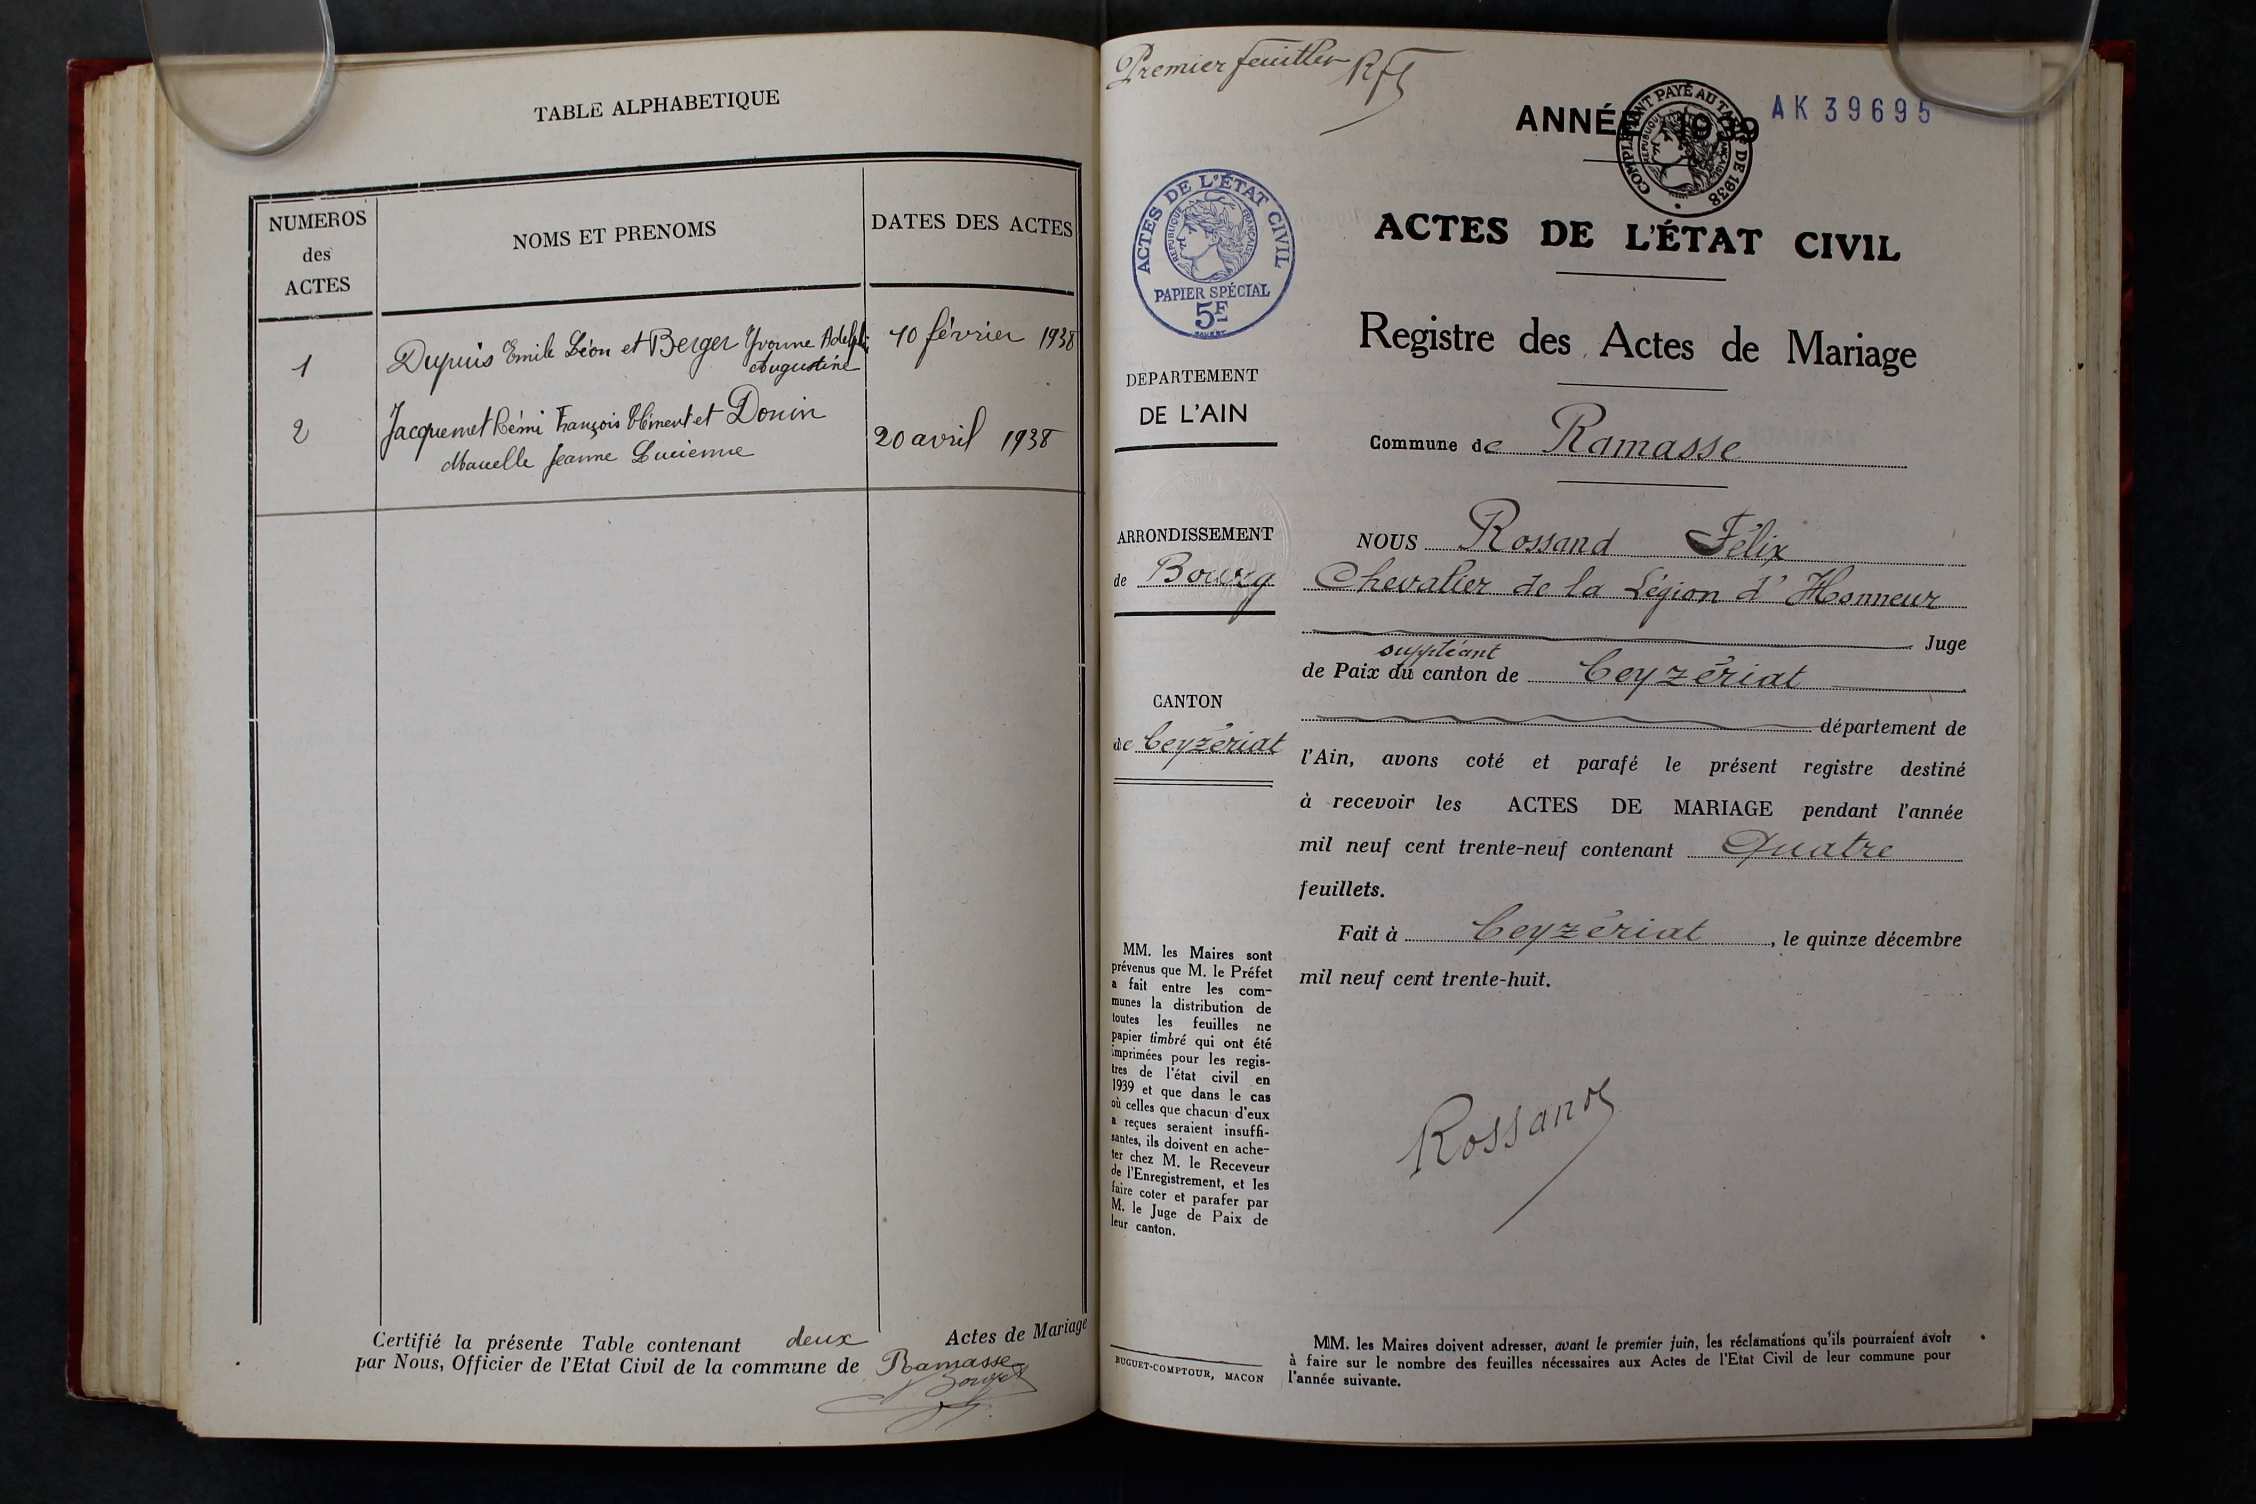 TABLE ALPHABETIQUE
NUMEROS
des
ACTES
NOMS ET PRENOMS
DATES DES ACTES
1
Dupuis Emile Léon et Berger Yvonne Adelph
Augustine
10 février 1938
2
Jacquemet Rémi François Clément et Donin
Marcelle Jeanne Lucienne
20 avril 1938
Certifié la présente Table contenant deux Actes de Mariage
par Nous, Officier de l'Etat Civil de la commune de Ramasse
Premier feuillet
ANNÉE 1939
COMPLEMENT PAYÉ AU TARIF DE 1938
AK 39695
ACTES DE L'ÉTAT CIVIL
REPUBLIQUE FRANÇAISE
PAPIER SPÉCIAL
5F
ACTES DE L'ÉTAT CIVIL
Registre des Actes de Mariage
DEPARTEMENT
DE L'AIN
Commune de Ramasse
ARRONDISSEMENT
de Bourg
CANTON
de Ceyzériat
NOUS Rossand Félix
Chevalier de la Légion d'Honneur
Juge
suppléant
de Paix du canton de Ceyzériat
département de
l'Ain, avons coté et parafé le présent registre destiné
à recevoir les ACTES DE MARIAGE pendant l'année
mil neuf cent trente-neuf contenant Quatre
feuillets.
Fait à Ceyzériat, le quinze décembre
mil neuf cent trente-huit.
Rossand
MM. les Maires sont
prévenus que M. le Préfet
a fait entre les com-
munes la distribution de
toutes les feuilles ne
papier timbré qui ont été
imprimées pour les regis-
tres de l'état civil en
1939 et que dans le cas
où celles que chacun d'eux
a reçues seraient insuffi-
santes, ils doivent en ache-
ter chez M. le Receveur
de l'Enregistrement, et les
faire coter et parafer par
M. le Juge de Paix de
leur canton.
BUGUET-COMPTOUR, MACON
MM. les Maires doivent adresser, avant le premier juin, les réclamations qu'ils pourraient avoir
à faire sur le nombre des feuilles nécessaires aux Actes de l'Etat Civil de leur commune pour
l'année suivante.